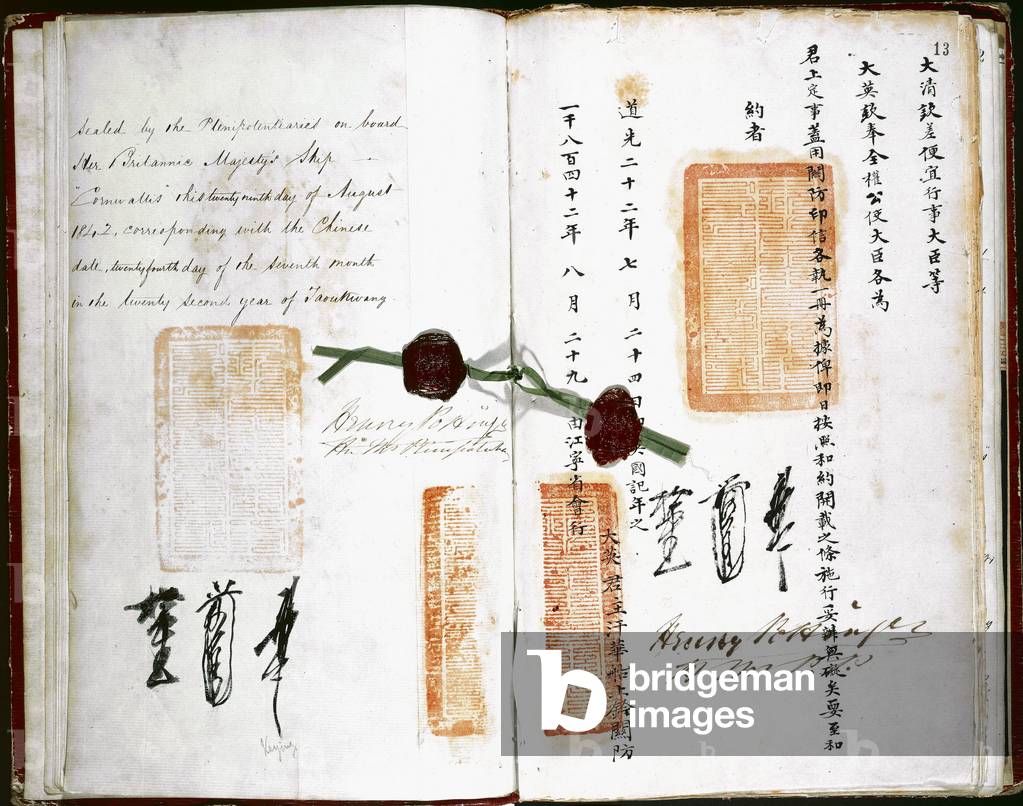 Sealed by the Plenipotentiaries on board
Her Britannic Majesty's Ship
"Cornwallis" this twenty ninth day of August
1842, corresponding with the Chinese
date, twenty fourth day of the seventh month
in the twenty second year of Taoukwang.
Henry Pottinger
Keying
13
大清欽差便宜行事大臣等
大英欽奉全權公使大臣各為
君上定事蓋用關防印信各執一冊為據俾即日按照和約開載之條施行妥辦無礙矣要至和
約者
道光二十二年七月二十四日即英國記年之
一千八百四十二年八月二十九日由江寧省會行
大英君主汗華船上鈐關防
Henry Pottinger
bridgeman
images